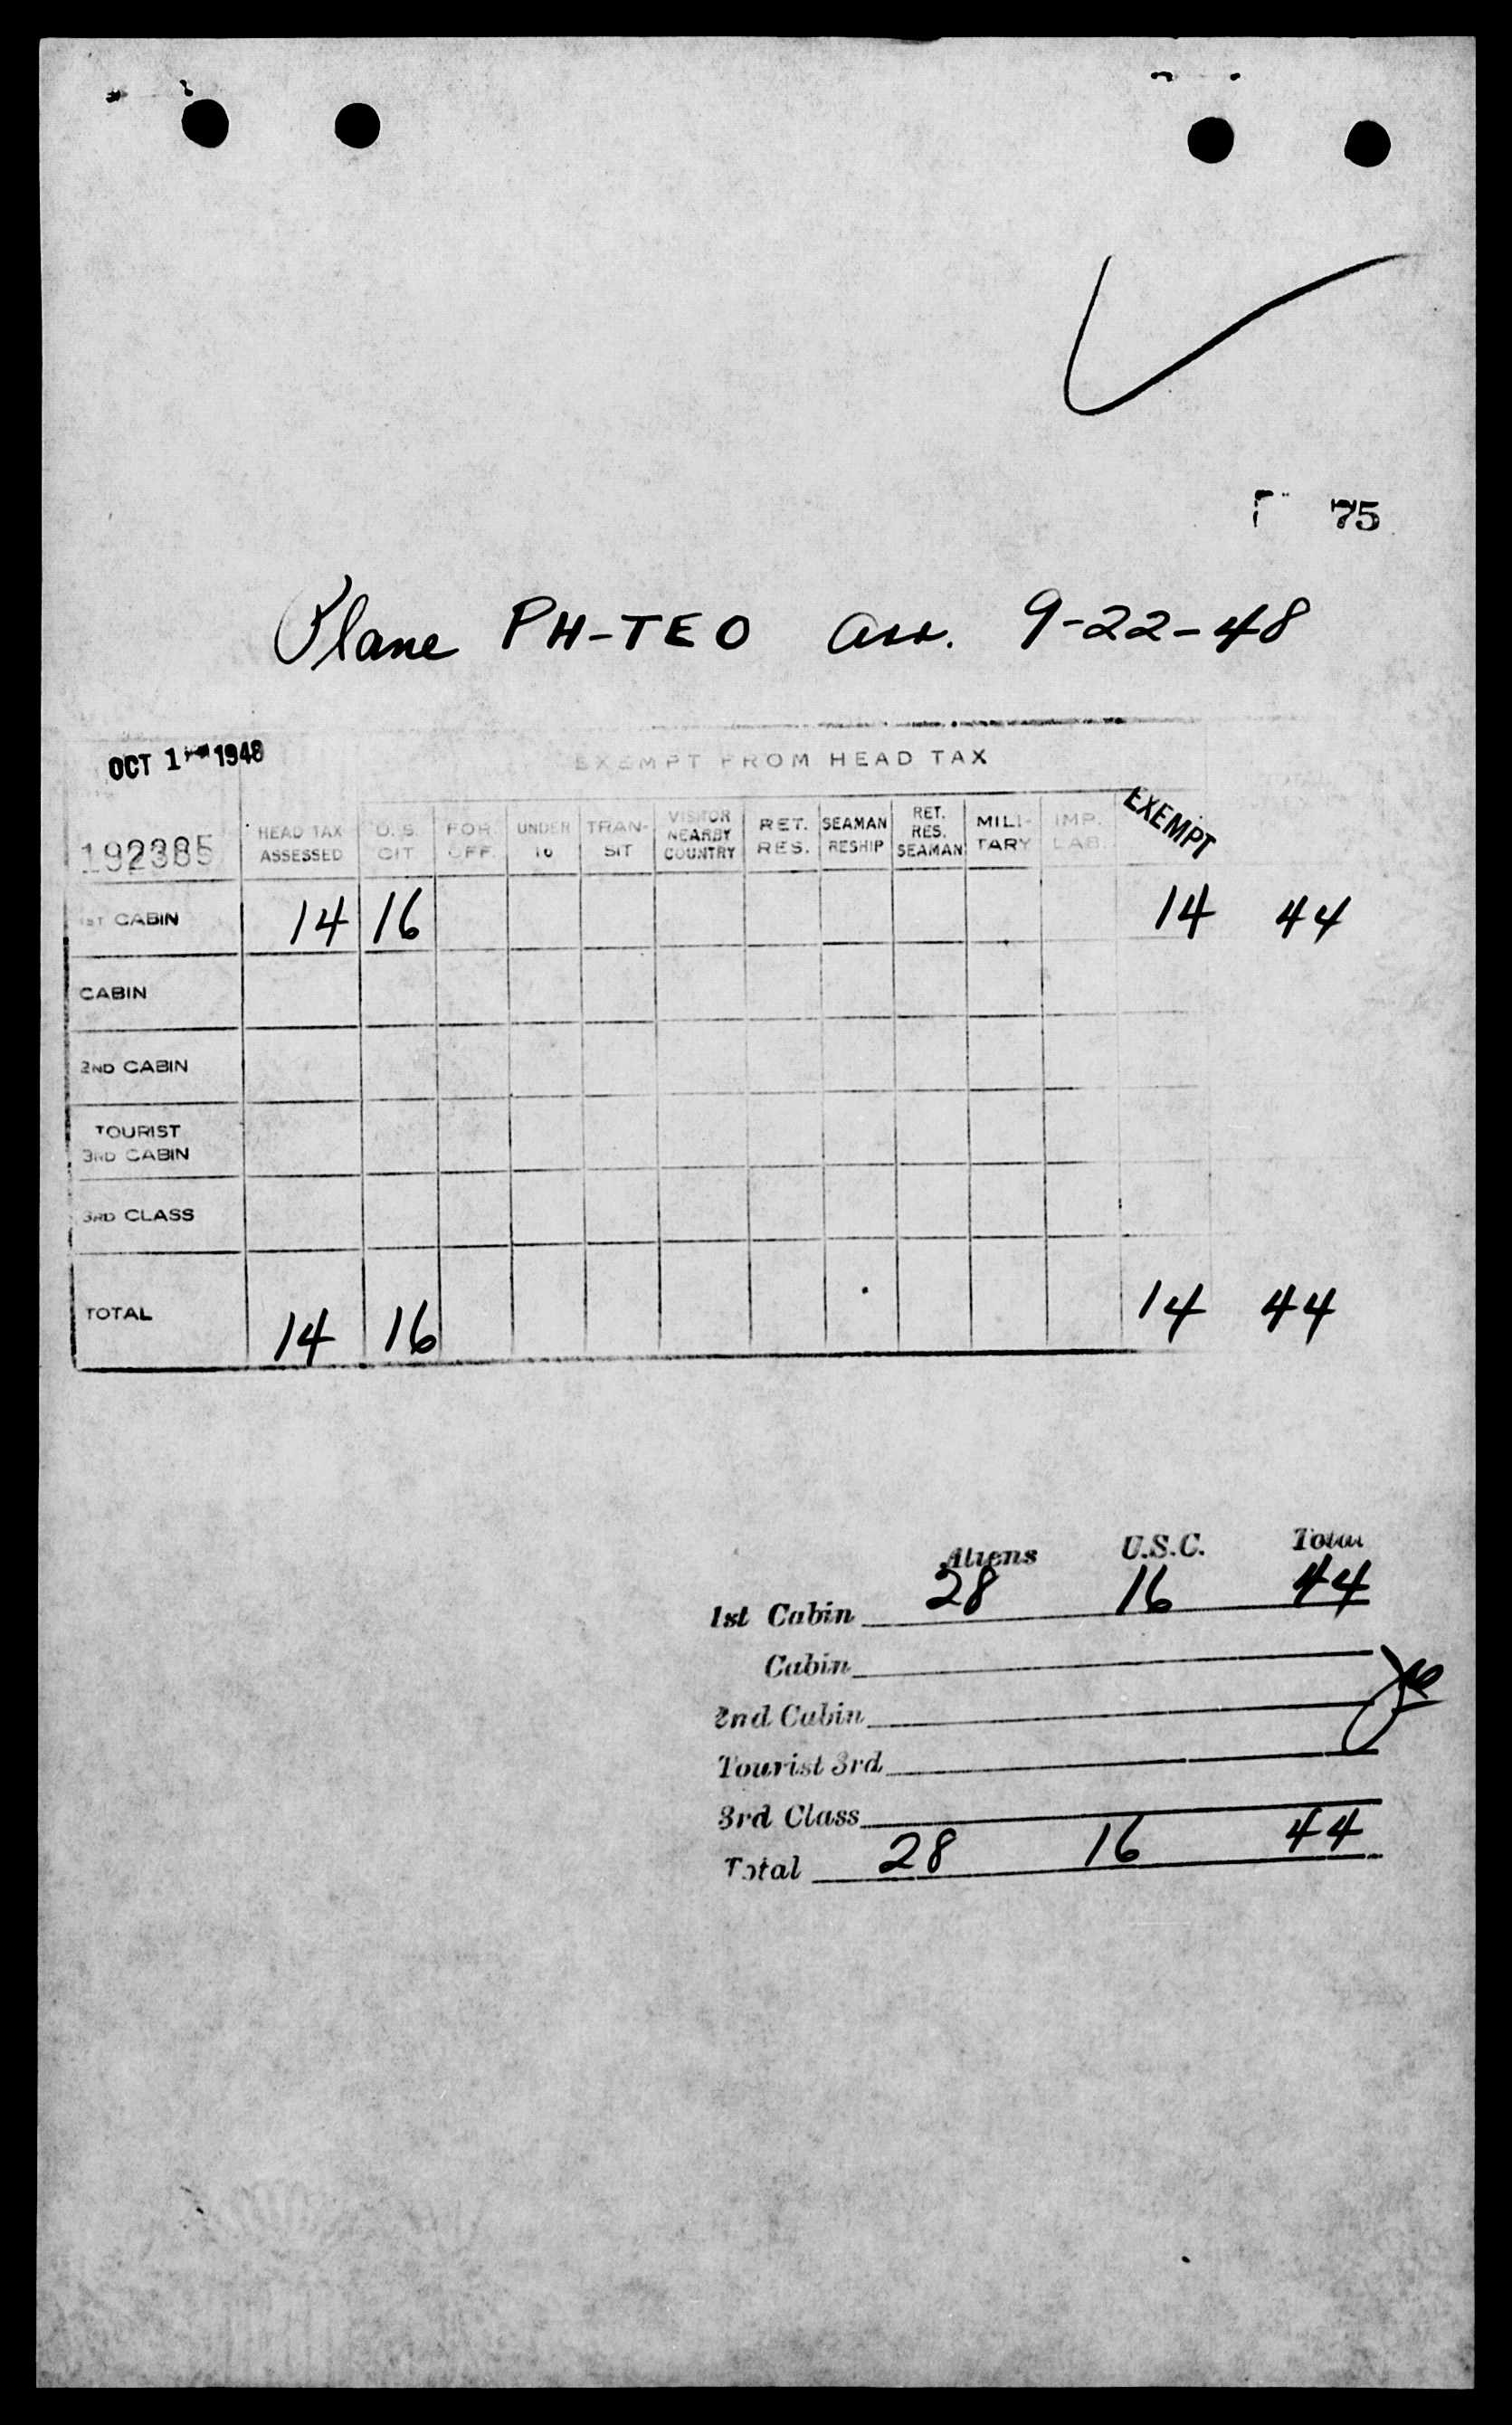 75
Plane PH-TEO arr. 9-22-48
OCT 1 1948
EXEMPT FROM HEAD TAX
192385
HEAD TAX ASSESSED
U.S. CIT
FOR OFF.
UNDER 16
TRAN-SIT
VISITOR NEARBY COUNTRY
RET. RES.
SEAMAN RESHIP
RET. RES. SEAMAN
MILI-TARY
IMP. LAB.
EXEMPT
1ST CABIN 14 16 14 44
CABIN
2ND CABIN
TOURIST
3RD CABIN
3RD CLASS
TOTAL 14 16 14 44
Aliens U.S.C. Total
1st Cabin 28 16 44
Cabin
2nd Cabin
Tourist 3rd
3rd Class
Total 28 16 44